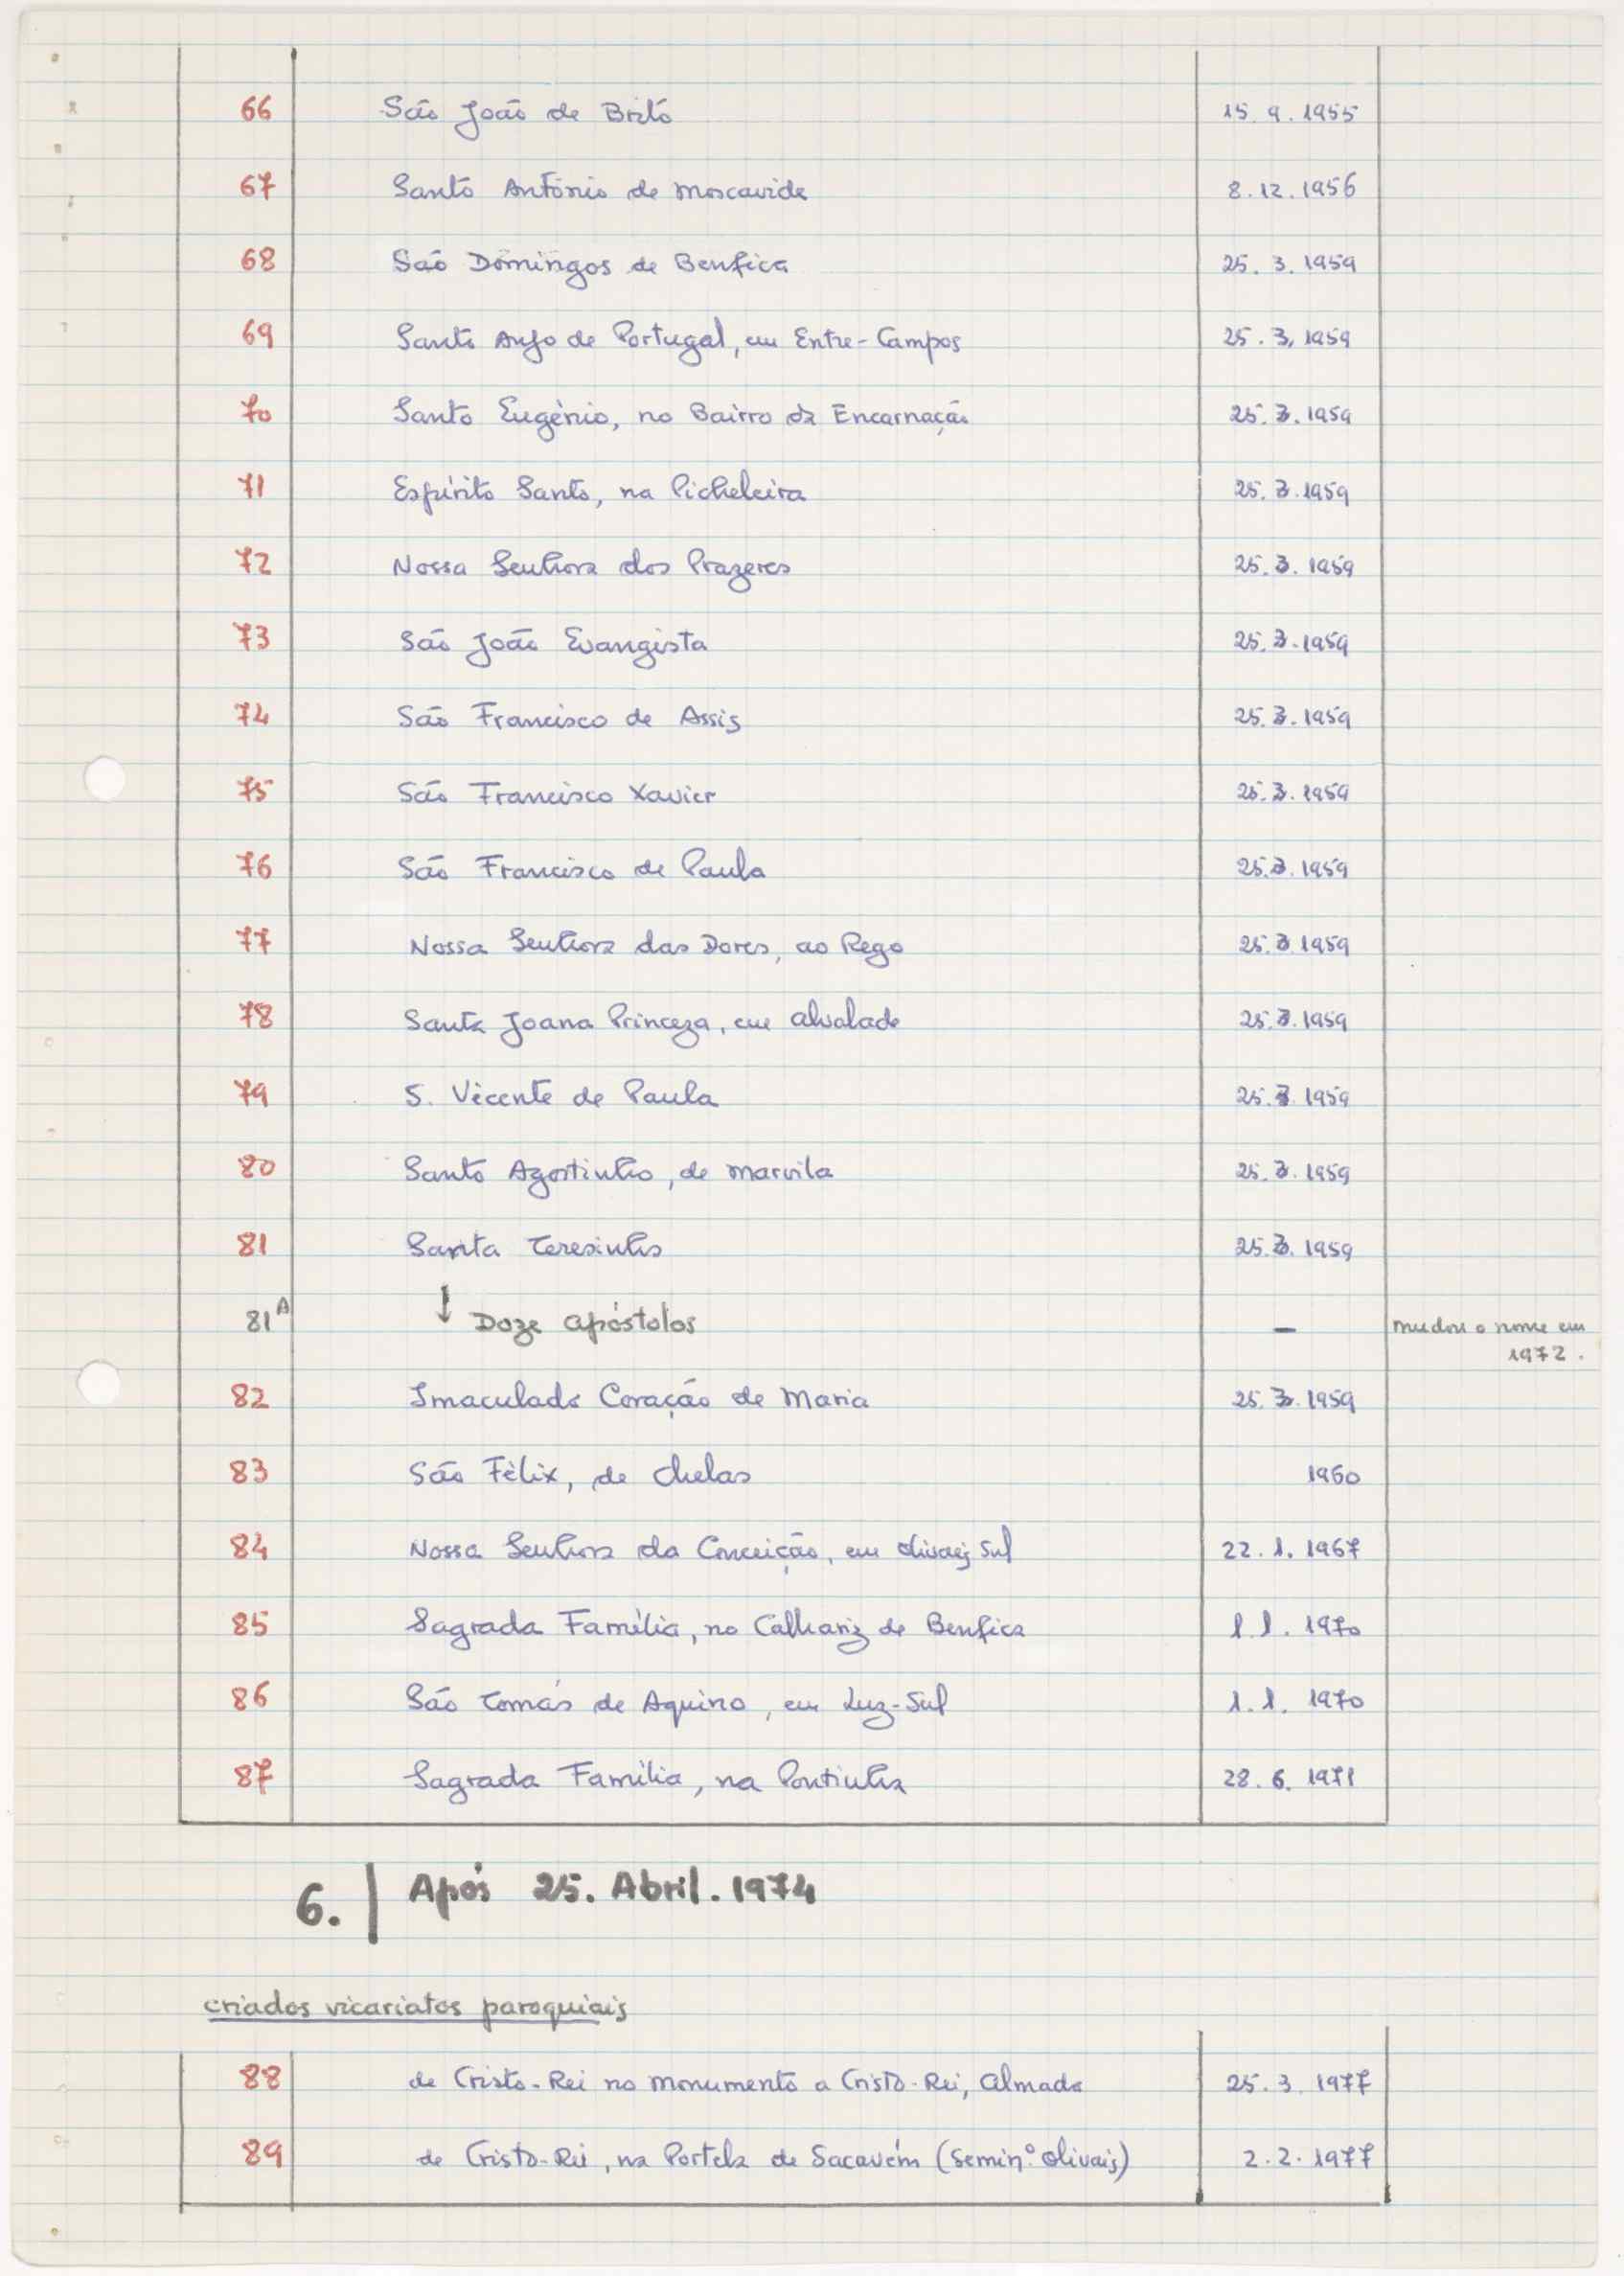 66 São João de Brito 15.9.1955
67 Santo António de Moscavide 8.12.1956
68 São Domingos de Benfica 25.3.1959
69 Santo Anjo de Portugal, em Entre-Campos 25.3.1959
70 Santo Eugénio, no Bairro da Encarnação 25.3.1959
71 Espírito Santo, na Picheleira 25.3.1959
72 Nossa Senhora dos Prazeres 25.3.1959
73 São João Evangista 25.3.1959
74 São Francisco de Assis 25.3.1959
75 São Francisco Xavier 25.3.1959
76 São Francisco de Paula 25.3.1959
77 Nossa Senhora das Dores, ao Rego 25.3.1959
78 Santa Joana Princeza, em Alvalade 25.3.1959
79 S. Vicente de Paula 25.3.1959
80 Santo Agostinho, de Marvila 25.3.1959
81 Santa Teresinha 25.3.1959
81A ↓ Doze Apóstolos – mudou o nome em
1972.
82 Imaculado Coração de Maria 25.3.1959
83 São Félix, de Chelas 1960
84 Nossa Senhora da Conceição, em Olivais Sul 22.1.1967
85 Sagrada Família, no Calhariz de Benfica 1.1.1970
86 São Tomás de Aquino, em Luz-Sul 1.1.1970
87 Sagrada Família, na Pontinha 28.6.1971
6. | Após 25. Abril. 1974
criados vicariatos paroquiais
88 de Cristo-Rei no monumento a Cristo-Rei, Almada 25.3.1977
89 de Cristo-Rei, na Portela de Sacavém (Semin.º Olivais) 2.2.1977